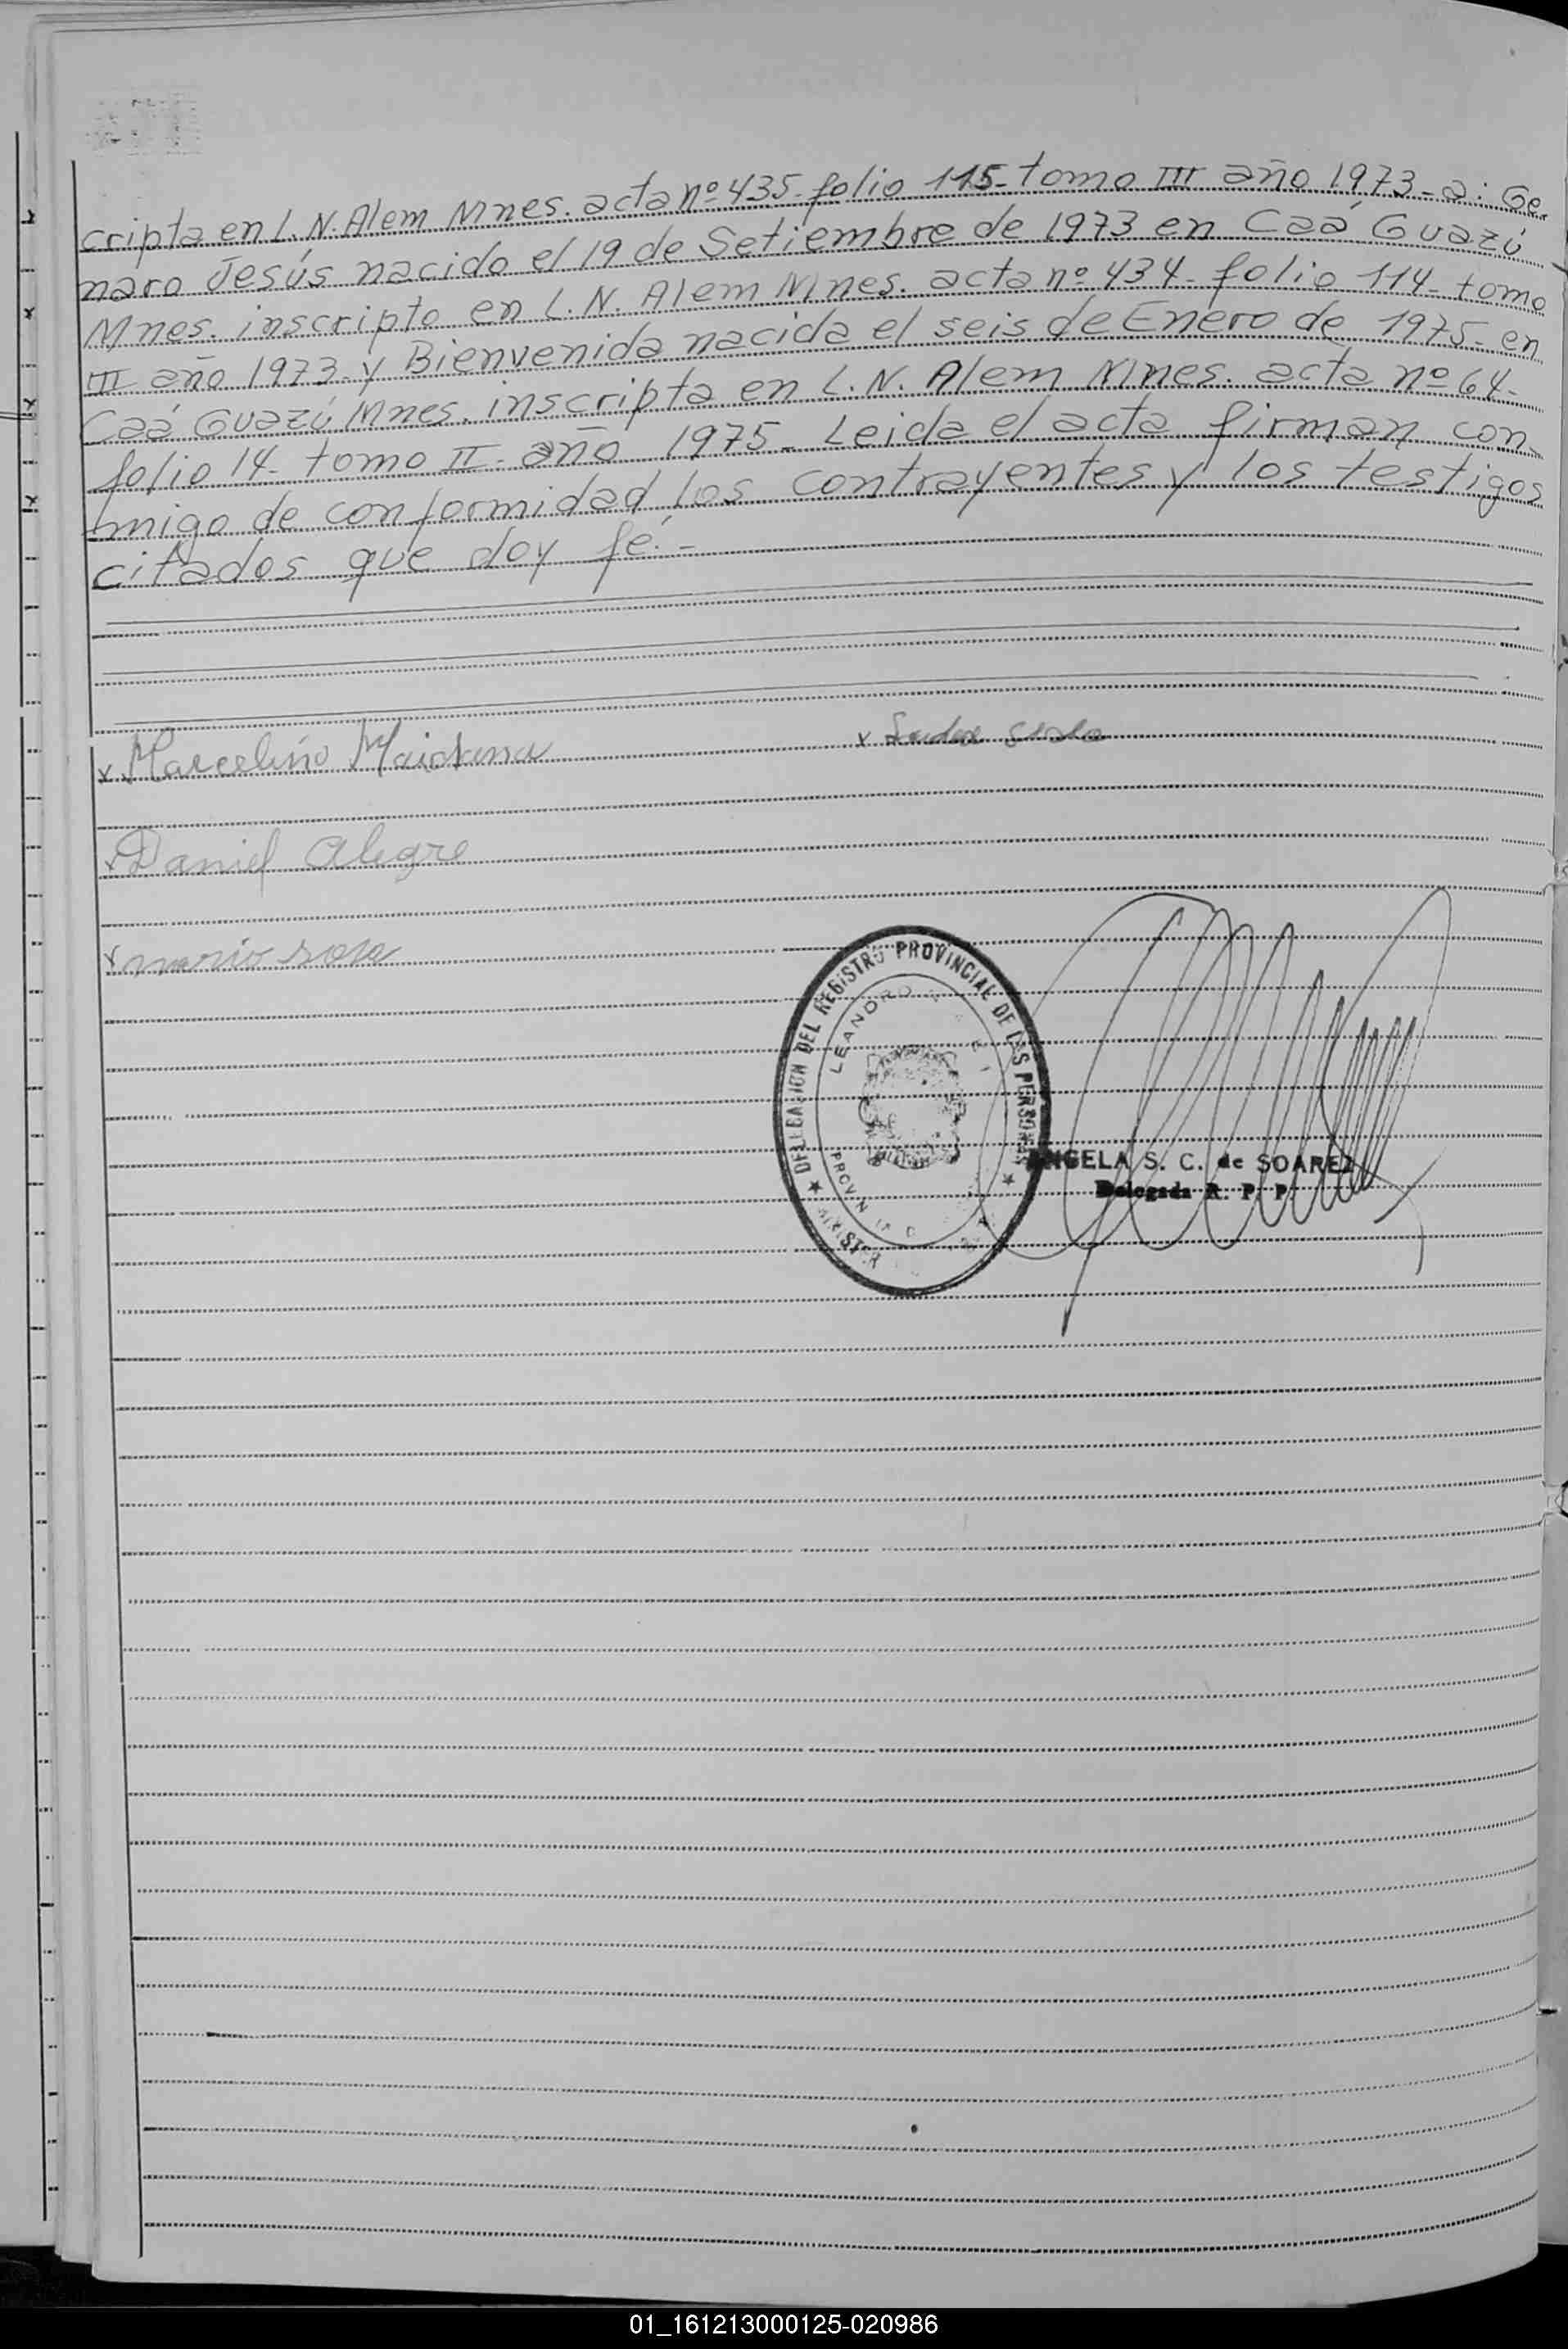 cripta en L. N. Alem Mnes. acta nº 435. folio 115- tomo III año 1973- a: Ge-
naro Jesús nacido el 19 de Setiembre de 1973 en Caá Guazú
Mnes. inscripto en L. N. Alem Mnes. acta nº 434- folio 114- tomo
III año 1973- y Bienvenida nacida el seis de Enero de 1975- en
Caá Guazú Mnes. inscripta en L. N. Alem Mnes. acta nº 64-
folio 14- tomo II- año 1975- Leida el acta firman con
migo de conformidad los contrayentes y los testigos
citados que doy fé.-
x Marcelino Maidana x
x Daniel Alegre
x mario rosa
DELEGACION DEL REGISTRO PROVINCIAL DE LAS PERSONAS
LEANDRO
ANGELA S. C. de SOAREZ
Delegada R. P. P.
01_161213000125-020986